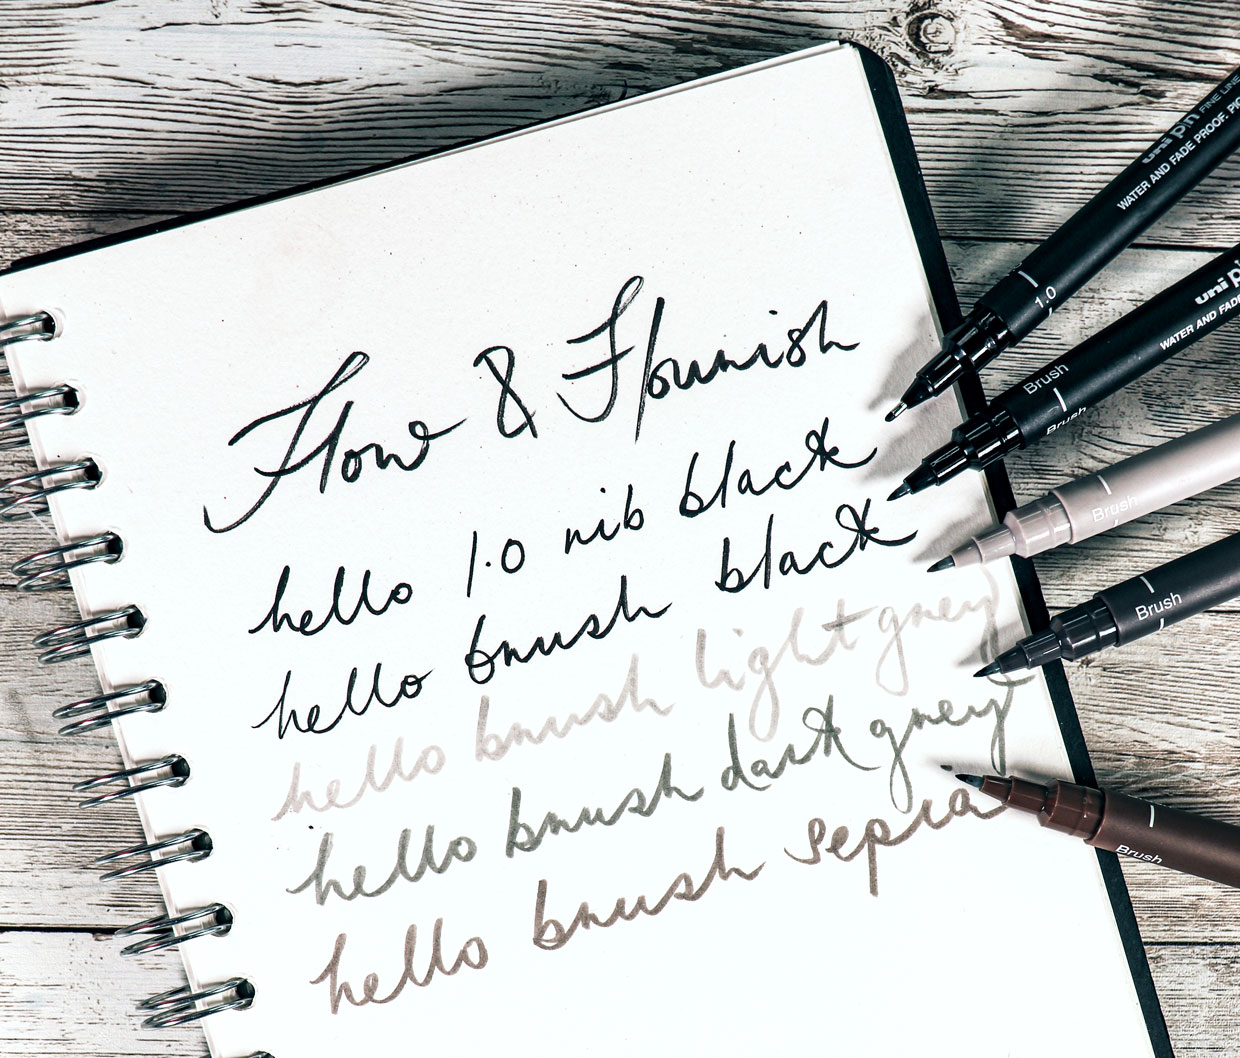 Flow & Flourish
hello 1.0 nib black
hello brush black
hello brush light grey
hello brush dark grey
hello brush sepia
uni pin FINE LINE
WATER AND FADE PROOF, PIG
1.0
uni pin
WATER AND FADE
Brush
Brush
Brush
Brush
Brush